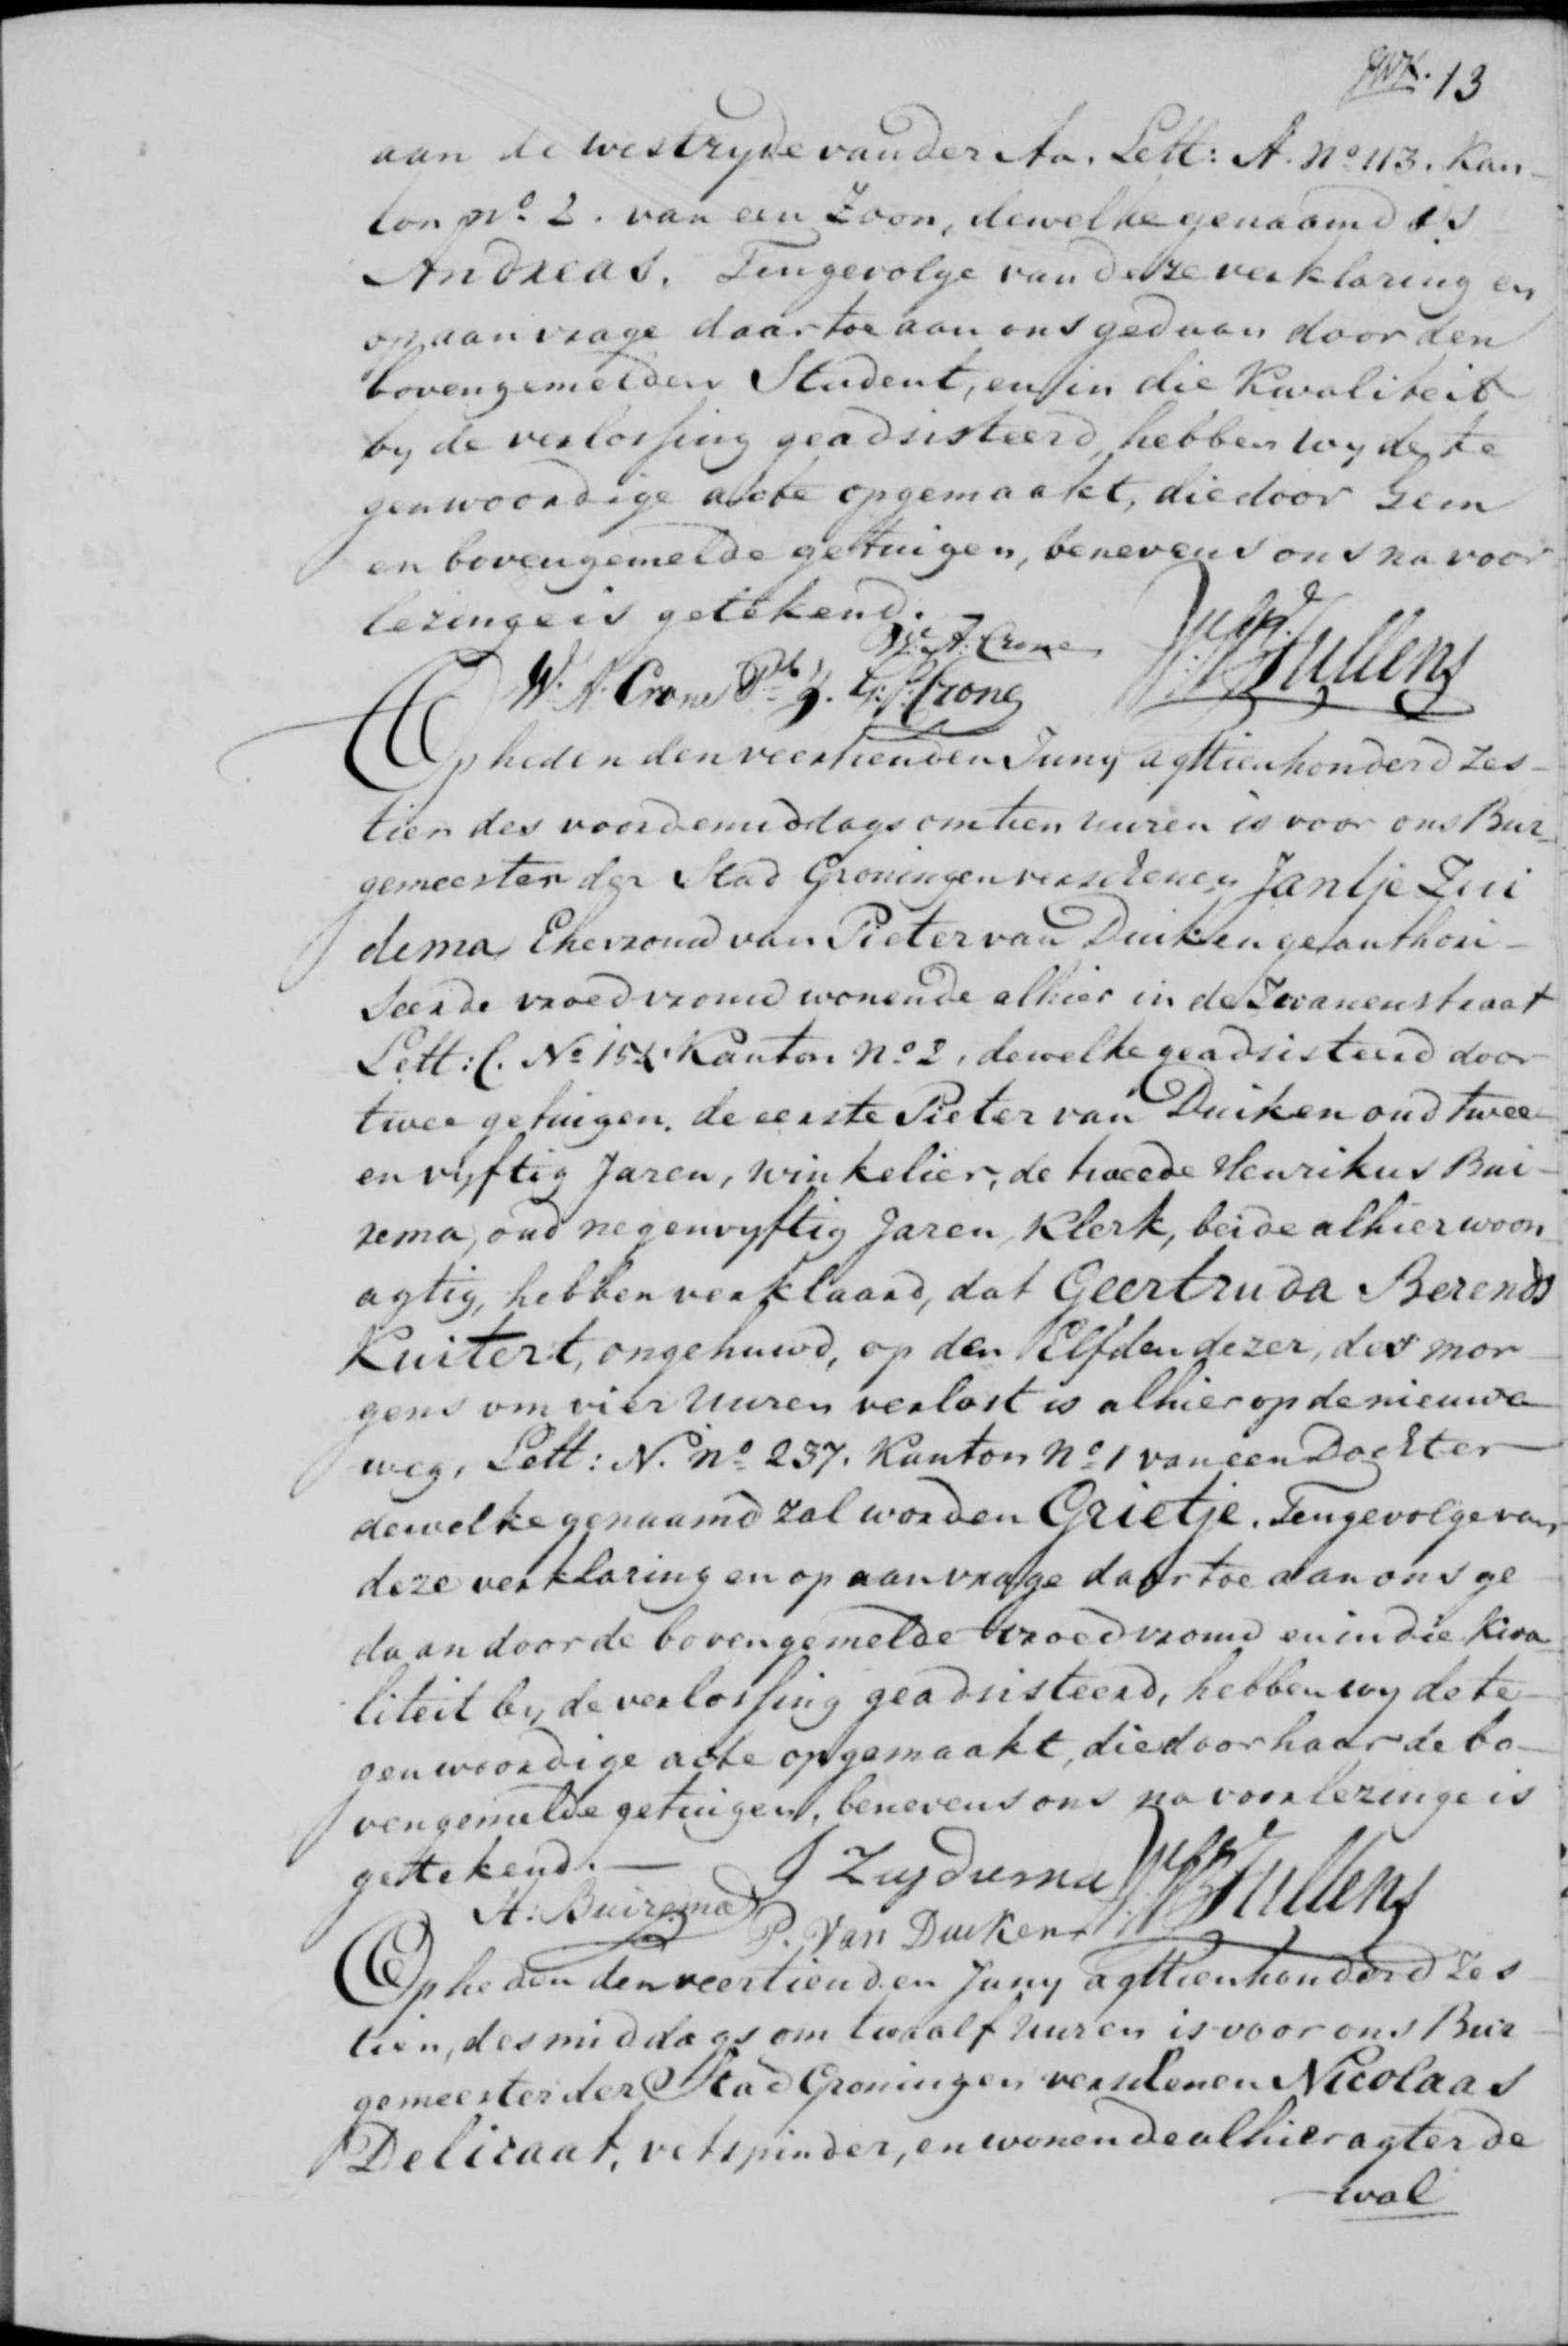 13
aan de westzyde van der Aa. Lett: A. No 113. Kan-
ton No 2. van een Zoon, dewelke genaamd is
Andreas. Tengevolge van deze verklaring en
op aanvrage daartoe aan ons gedaan door den
bovengemelden Student, en in die Kwaliteit
by de verlossing geadsisteerd, hebben wy de te
genwoordige acte opgemaakt, die door hem
en bovengemelde getuigen, benevens ons na voor
lezinge is getekend.
A. Crone
W. A. Crone Crone Tullens
Op heden den veertienden Juny agttienhonderd zes-
tien des voordemiddags om tien uuren is voor ons Bur-
gemeester der Stad Groningen verschenen Jantje Zui
dema Ehevrouw van Pieter van Duiken geauthori-
seerde vroedvrouw wonende alhier in de Zwanenstraat
Lett: C. No 154 Kanton No 2, dewelke geadsisteerd door
twee getuigen. de eerste Pieter van Duiken oud twee
en vyftig Jaren, winkelier, de tweede Henrikus Bui-
rema, oud negenvyftig Jaren, Klerk, beide alhier woon
agtig, hebben verklaard, dat Geertruda Berends
Kuitert, ongehuwd, op den Elfden dezer, des mor-
gens om vier uuren verlost is alhier op de nieuwe
weg, Lett: N. No 237. Kanton No 1 van een Dochter
dewelke genaamd zal worden Grietje. Tengevolge van
deze verklaring en op aanvrage daartoe aan ons ge-
daan door de bovengemelde vroedvrouw en in die Kwa
liteit by de verlossing geadsisteerd, hebben wy de te-
genwoordige acte opgemaakt, die door haar de bo-
vengemelde getuigen, benevens ons na voorlezinge is
getekend. — J Zuydema Tullens
H. Buirema P. van Duiken
Op heden den veertienden Juny agttienhonderd zes-
tien, des middags om twaalf uuren is voor ons Bur-
gemeester der Stad Groningen verschenen Nicolaas
Delicaat, vetspinder, en wonende alhier agter de
wal